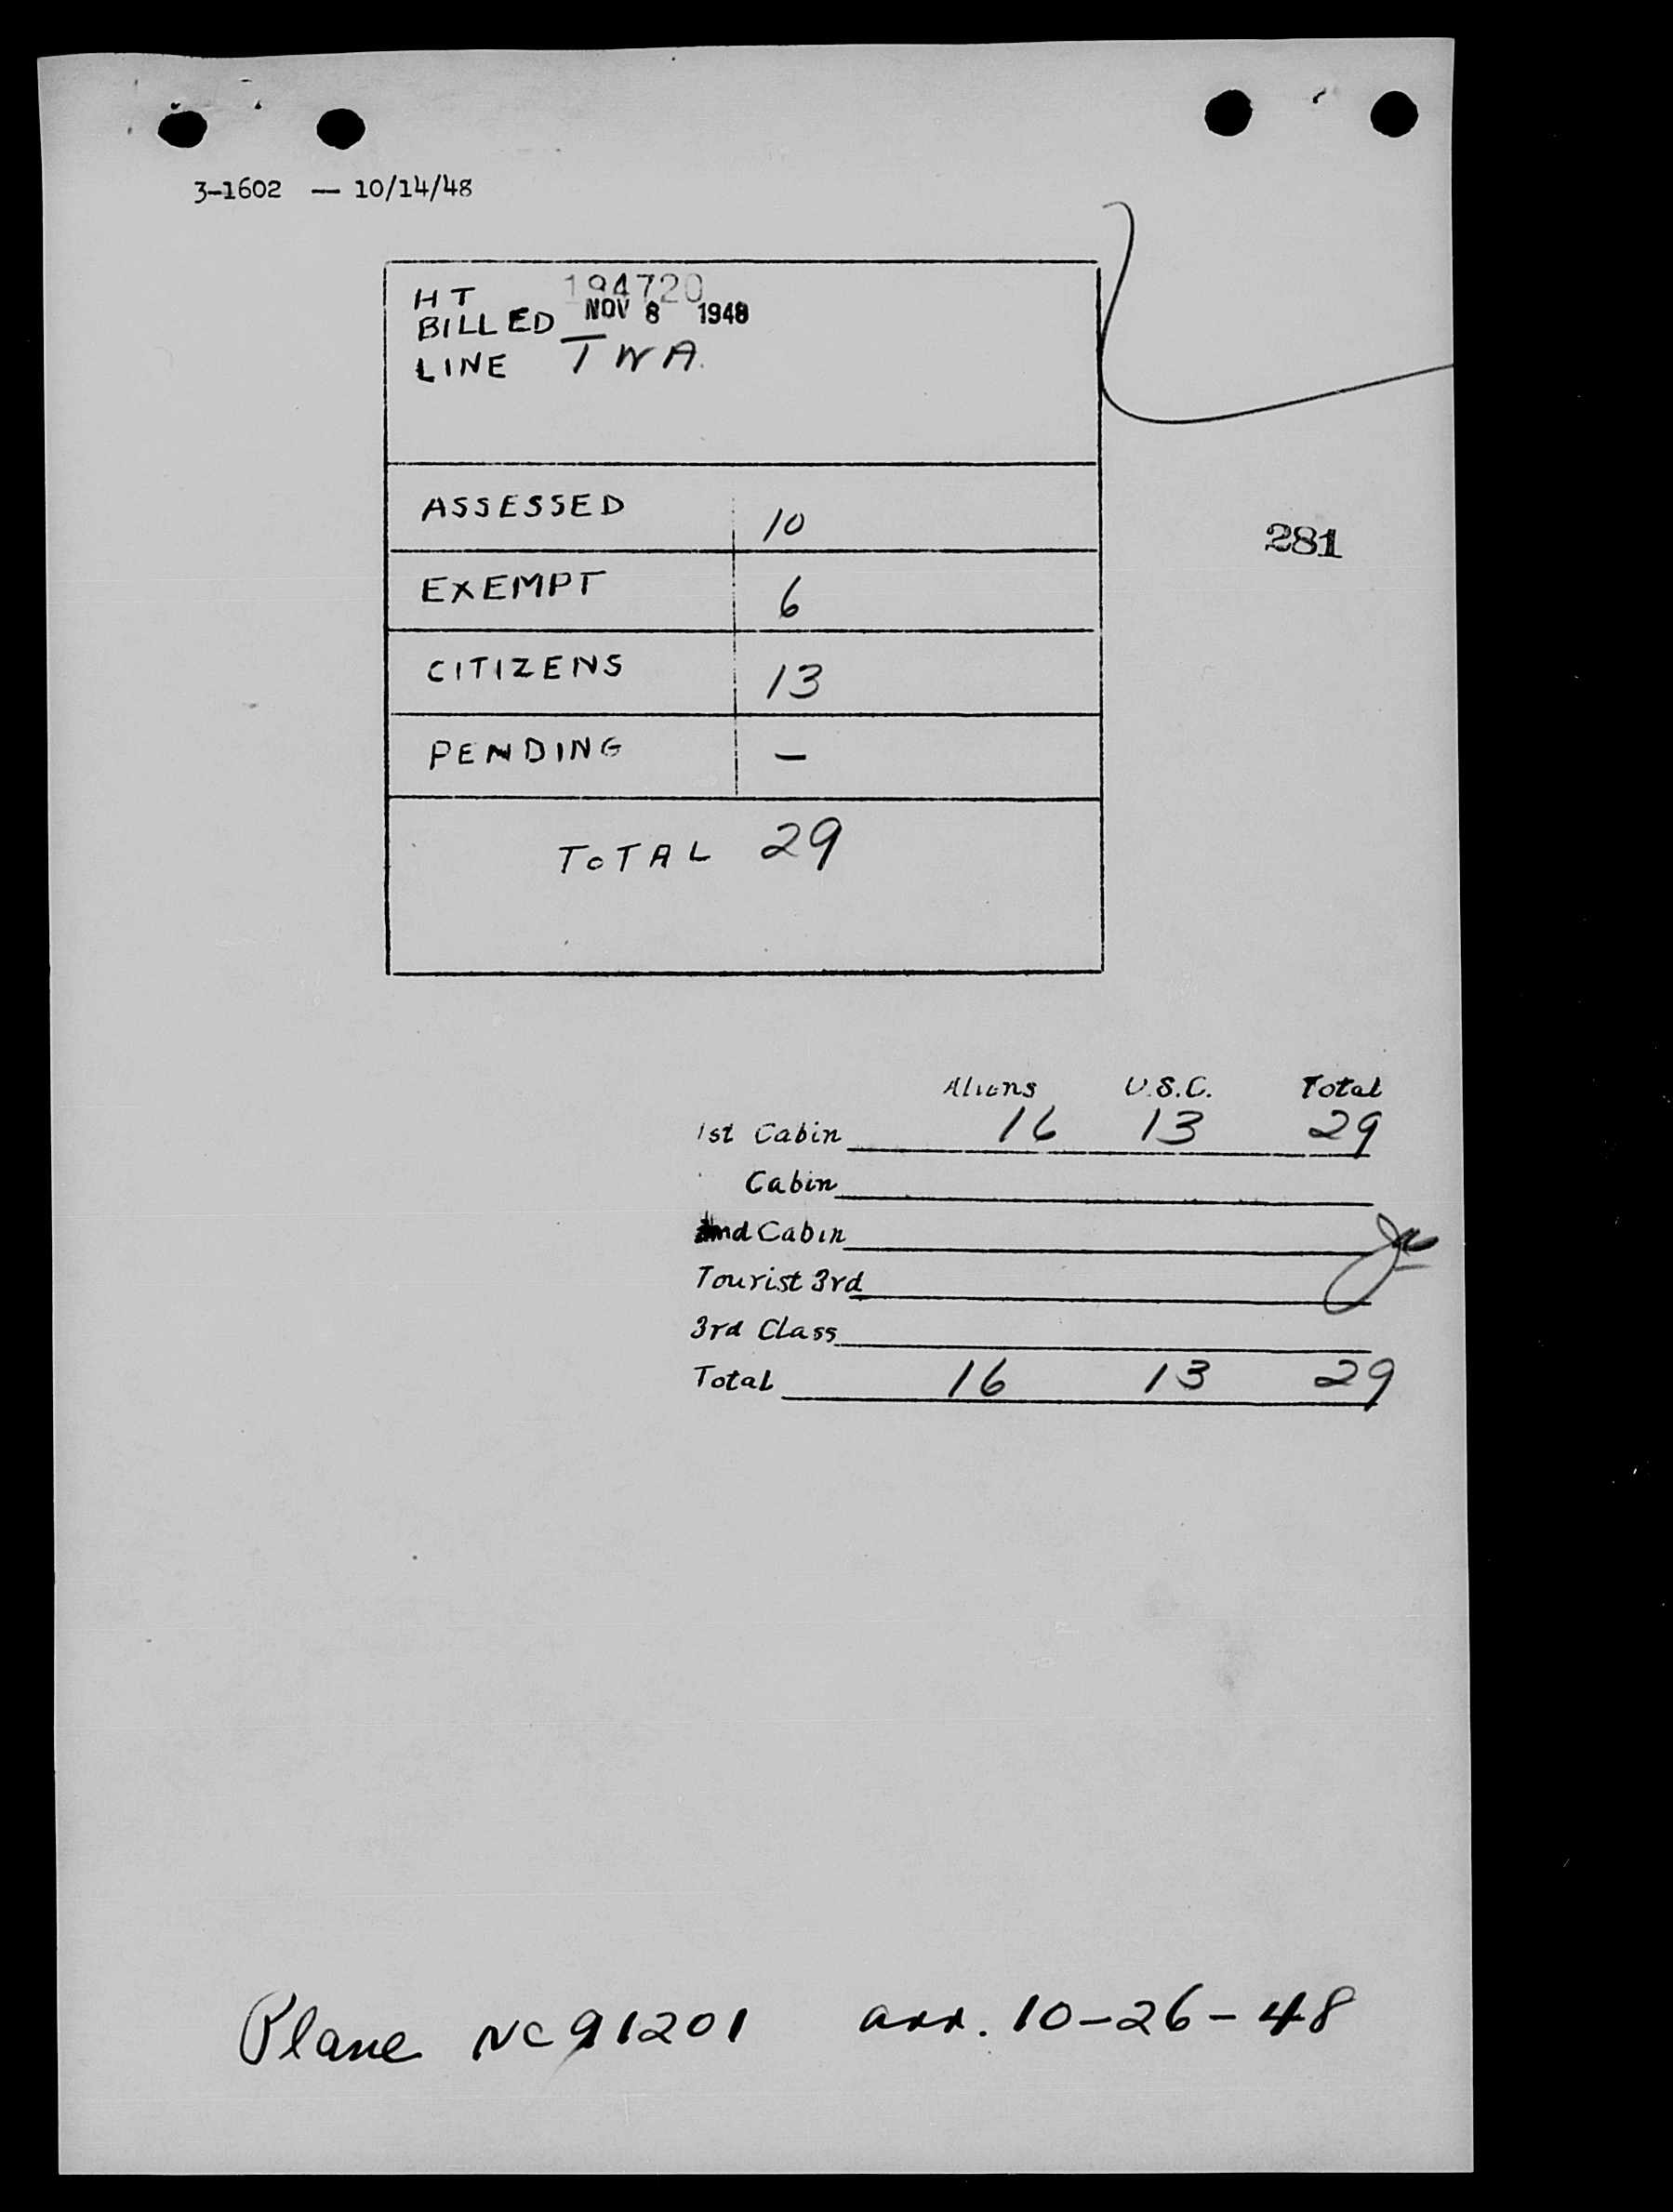 3-1602 — 10/14/48
HT 194720
BILLED NOV 8 1948
LINE TWA.
ASSESSED 10
281
EXEMPT 6
CITIZENS 13
PENDING —
TOTAL 29
Aliens U.S.C. Total
1st Cabin 16 13 29
Cabin
2nd Cabin
Tourist 3rd
3rd Class
Total 16 13 29
Plane NC91201 arr. 10-26-48